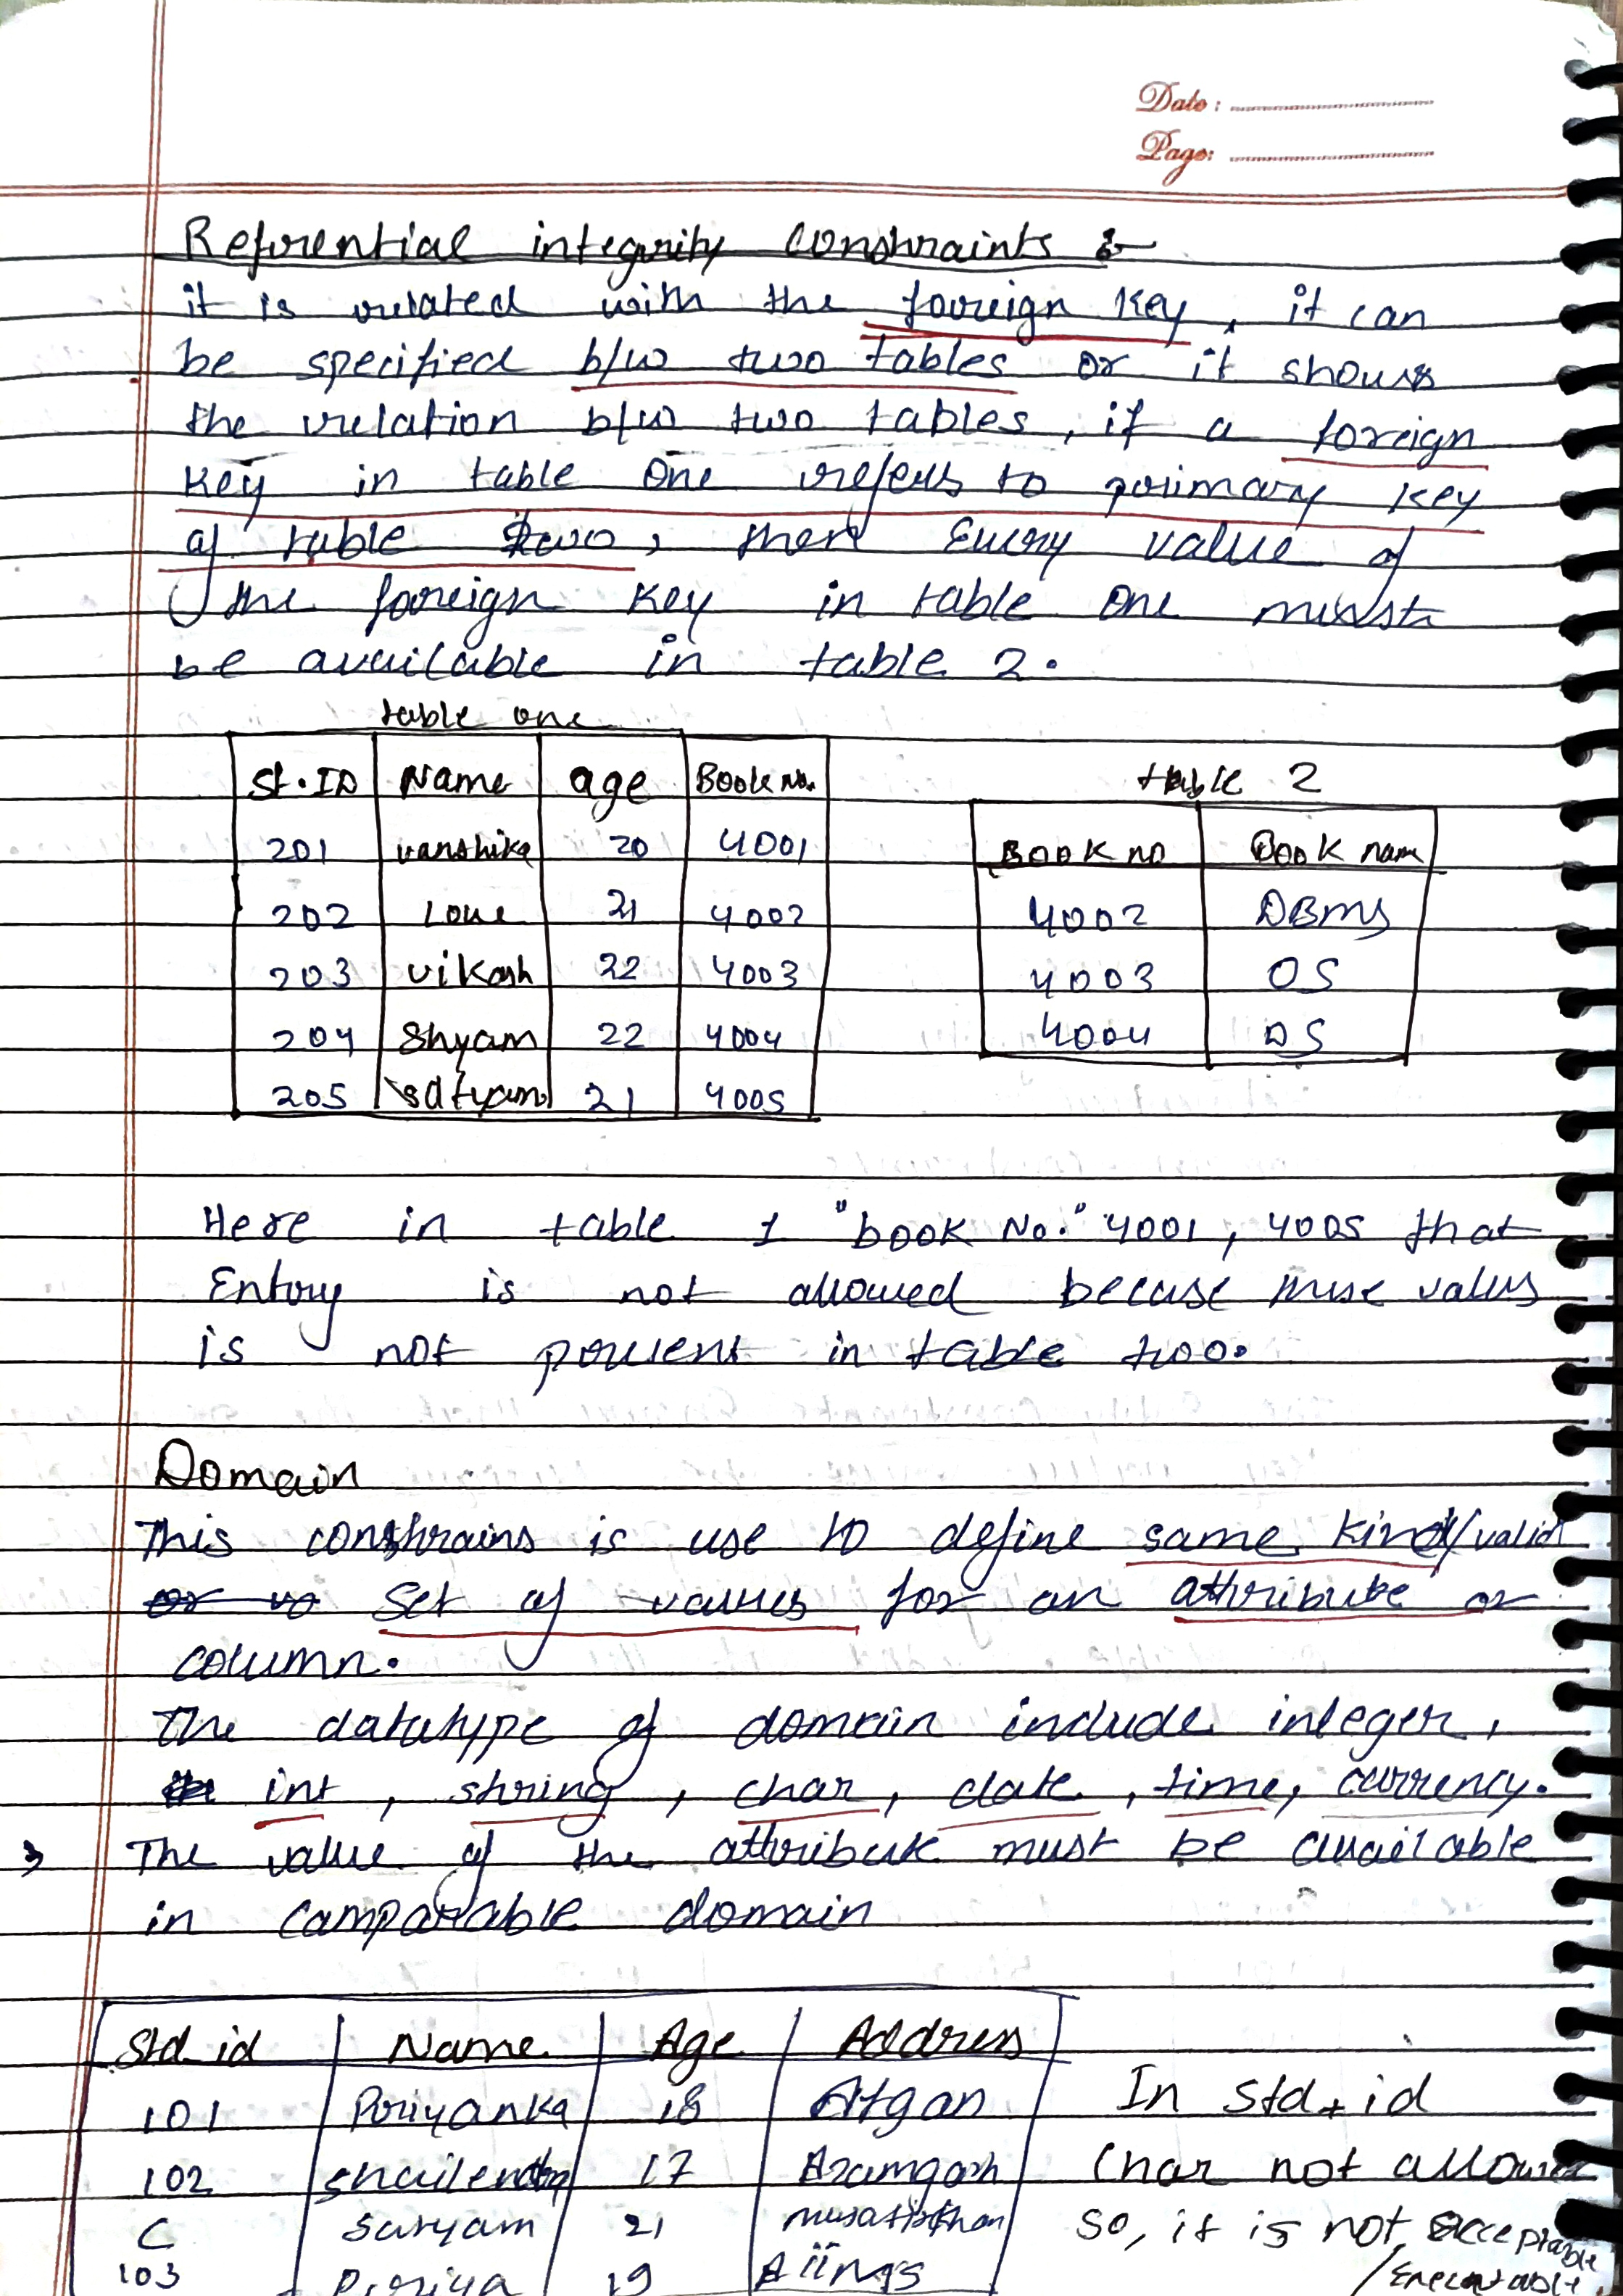 Date :
Page:
Referential integrity constraints :-
it is related with the foreign key, it can
be specified b/w two tables or it shows
the relation b/w two tables, if a foreign
key in table one refers to primary key
of table two, then Every value of
the foreign key in table one must
be available in table 2.
table one
St.ID Name age Book No.
201 vanshika 20 4001
202 Love 21 4002
203 vikash 22 4003
204 Shyam 22 4004
205 satyam 21 4005
table 2
Book no Book name
4002 DBMS
4003 OS
4004 DS
Here in table 1 "book No." 4001, 4005 that
Entry is not allowed becase those values
is not present in table two.
Domain
This constrains is use to define same kind/valid
set of values for an attribute or
column.
The datatype of domain include integer,
int, string, char, date, time, currency.
The value of the attribute must be available
in comparable domain
Std_id Name Age Address
101 Priyanka 18
102 17 Azamgarh
C Satyam 21
103 19
In std_id
Char not allowed
so, it is not acceptable